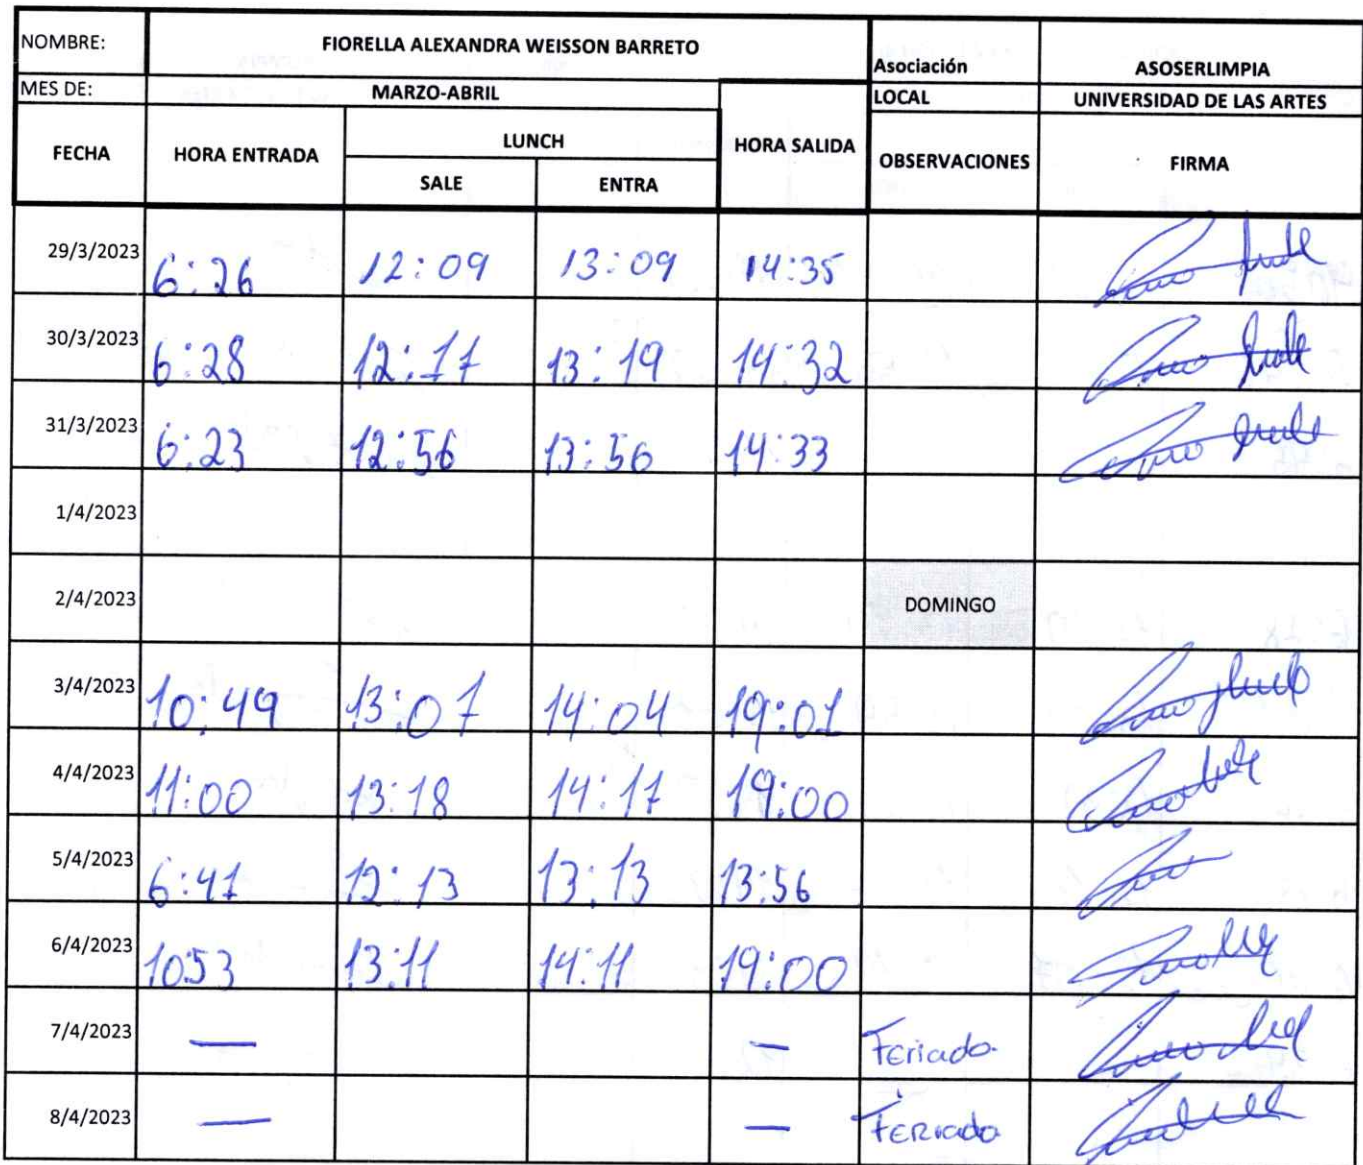 NOMBRE: FIORELLA ALEXANDRA WEISSON BARRETO Asociación ASOSERLIMPIA
MES DE: MARZO-ABRIL LOCAL UNIVERSIDAD DE LAS ARTES
FECHA HORA ENTRADA LUNCH HORA SALIDA OBSERVACIONES FIRMA
SALE ENTRA
29/3/2023 6:26 12:09 13:09 14:35
30/3/2023 6:28 12:17 13:19 14:32
31/3/2023 6:23 12:56 13:56 14:33
1/4/2023
2/4/2023 DOMINGO
3/4/2023 10:49 13:07 14:04 19:01
4/4/2023 11:00 13:18 14:17 19:00
5/4/2023 6:41 12:13 13:13 13:56
6/4/2023 1053 13:11 14:11 19:00
7/4/2023 — — Feriado
8/4/2023 — — FERiado